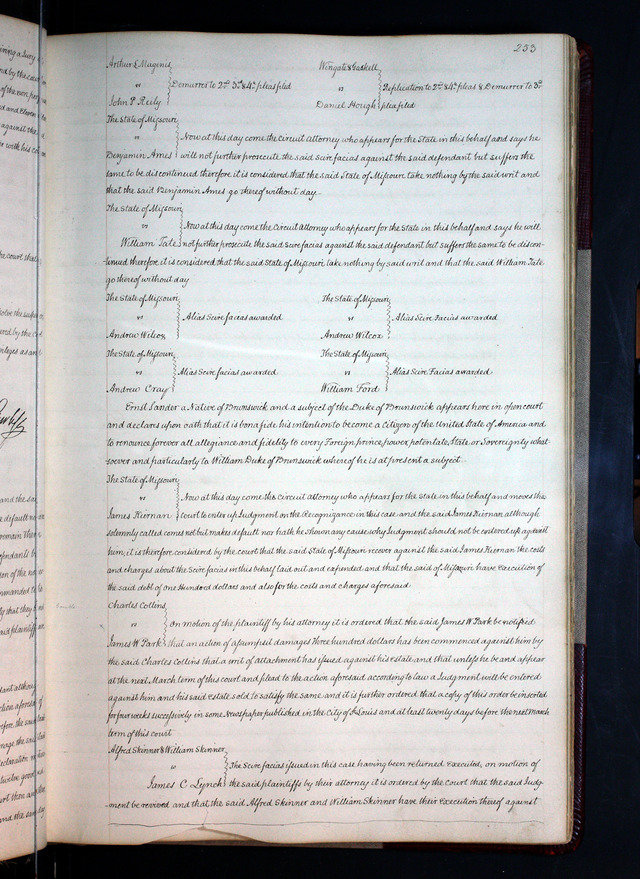 233
Arthur L Magenis
Demurrer to 2nd 3rd & 4th pleas filed
John P Reily
Wingate & Gaskill
vs
Replication to 2nd & 4th pleas & Demurrer to 3rd
Daniel Hough plea filed
The State of Missouri
vs
Now at this day come the Circuit Attorney who appears for the State in this behalf and says he
Benjamin Ames will not further prosecute the said Scire facias against the said defendant but suffers the
same to be discontinued therefore it is considered that the said State of Missouri take nothing by the said writ and
that the said Benjamin Ames go thereof without day
The State of Missouri
vs
Now at this day come the Circuit Attorney who appears for the State in this behalf and says he will
William Tate not further prosecute the said Scire facias against the said defendant but suffers the same to be discon-
tinued therefore it is considered that the said State of Missouri take nothing by said writ and that the said William Tate
go thereof without day
The State of Missouri
vs
Alias Scire facias awarded
Andrew Wilcox
The State of Missouri
vs
Alias Scire Facias awarded
Andrew Wilcox
The State of Missouri
vs
Alias Scire facias awarded
Andrew Cray
The State of Missouri
vs
Alias Scire Facias awarded
William Ford
Ernst Sander a Native of Brunswick and a subject of the Duke of Brunswick appears here in open court
and declares upon oath that it is bona fide his intention to become a Citizen of the United State of America and
to renounce forever all allegiance and fidelity to every Foreign prince, power, potentate, State or Sovereignty what-
soever and particularly to William Duke of Brunswick whereof he is at present a subject.
The State of Missouri
vs
Now at this day come the Circuit Attorney who appears for the State in this behalf and moves the
James Kiernan court to enter up Judgment on the Recognizance in this case and the said James Kiernan although
solemnly called comes not but makes default nor hath he shown any cause why Judgment should not be entered up against
him, it is therefore considered by the court that the said State of Missouri recover against the said James Kiernan the costs
and charges about the Scire facias in this behalf laid out and expended and that the said of Missouri have execution of
the said debt of one Hundred dollars and also for the costs and charges aforesaid
Charles Collins
vs
On motion of the plaintiff by his attorney it is ordered that the said James W Park be notified
James W Park that an action of assumpsit damages Three hundred dollars has been commenced against him by
the said Charles Collins that a writ of attachment has issued against his estate and that unless he be and appear
at the next March term of this court and plead to the action aforesaid according to law a Judgment will be entered
against him and his said estate sold to satisfy the same and it is further ordered that a copy of this order be inserted
for four weeks successively in some Newspaper published in the City of St Louis and at least twenty days before the next March
term of this court
Alfred Skinner & William Skinner
vs
The Scire facias issued in this case having been returned Executed, on motion of
James C Lynch the said plaintiffs by their attorney it is ordered by the Court that the said Judg-
ment be revived and that the said Alfred Skinner and William Skinner have their Execution thereof against